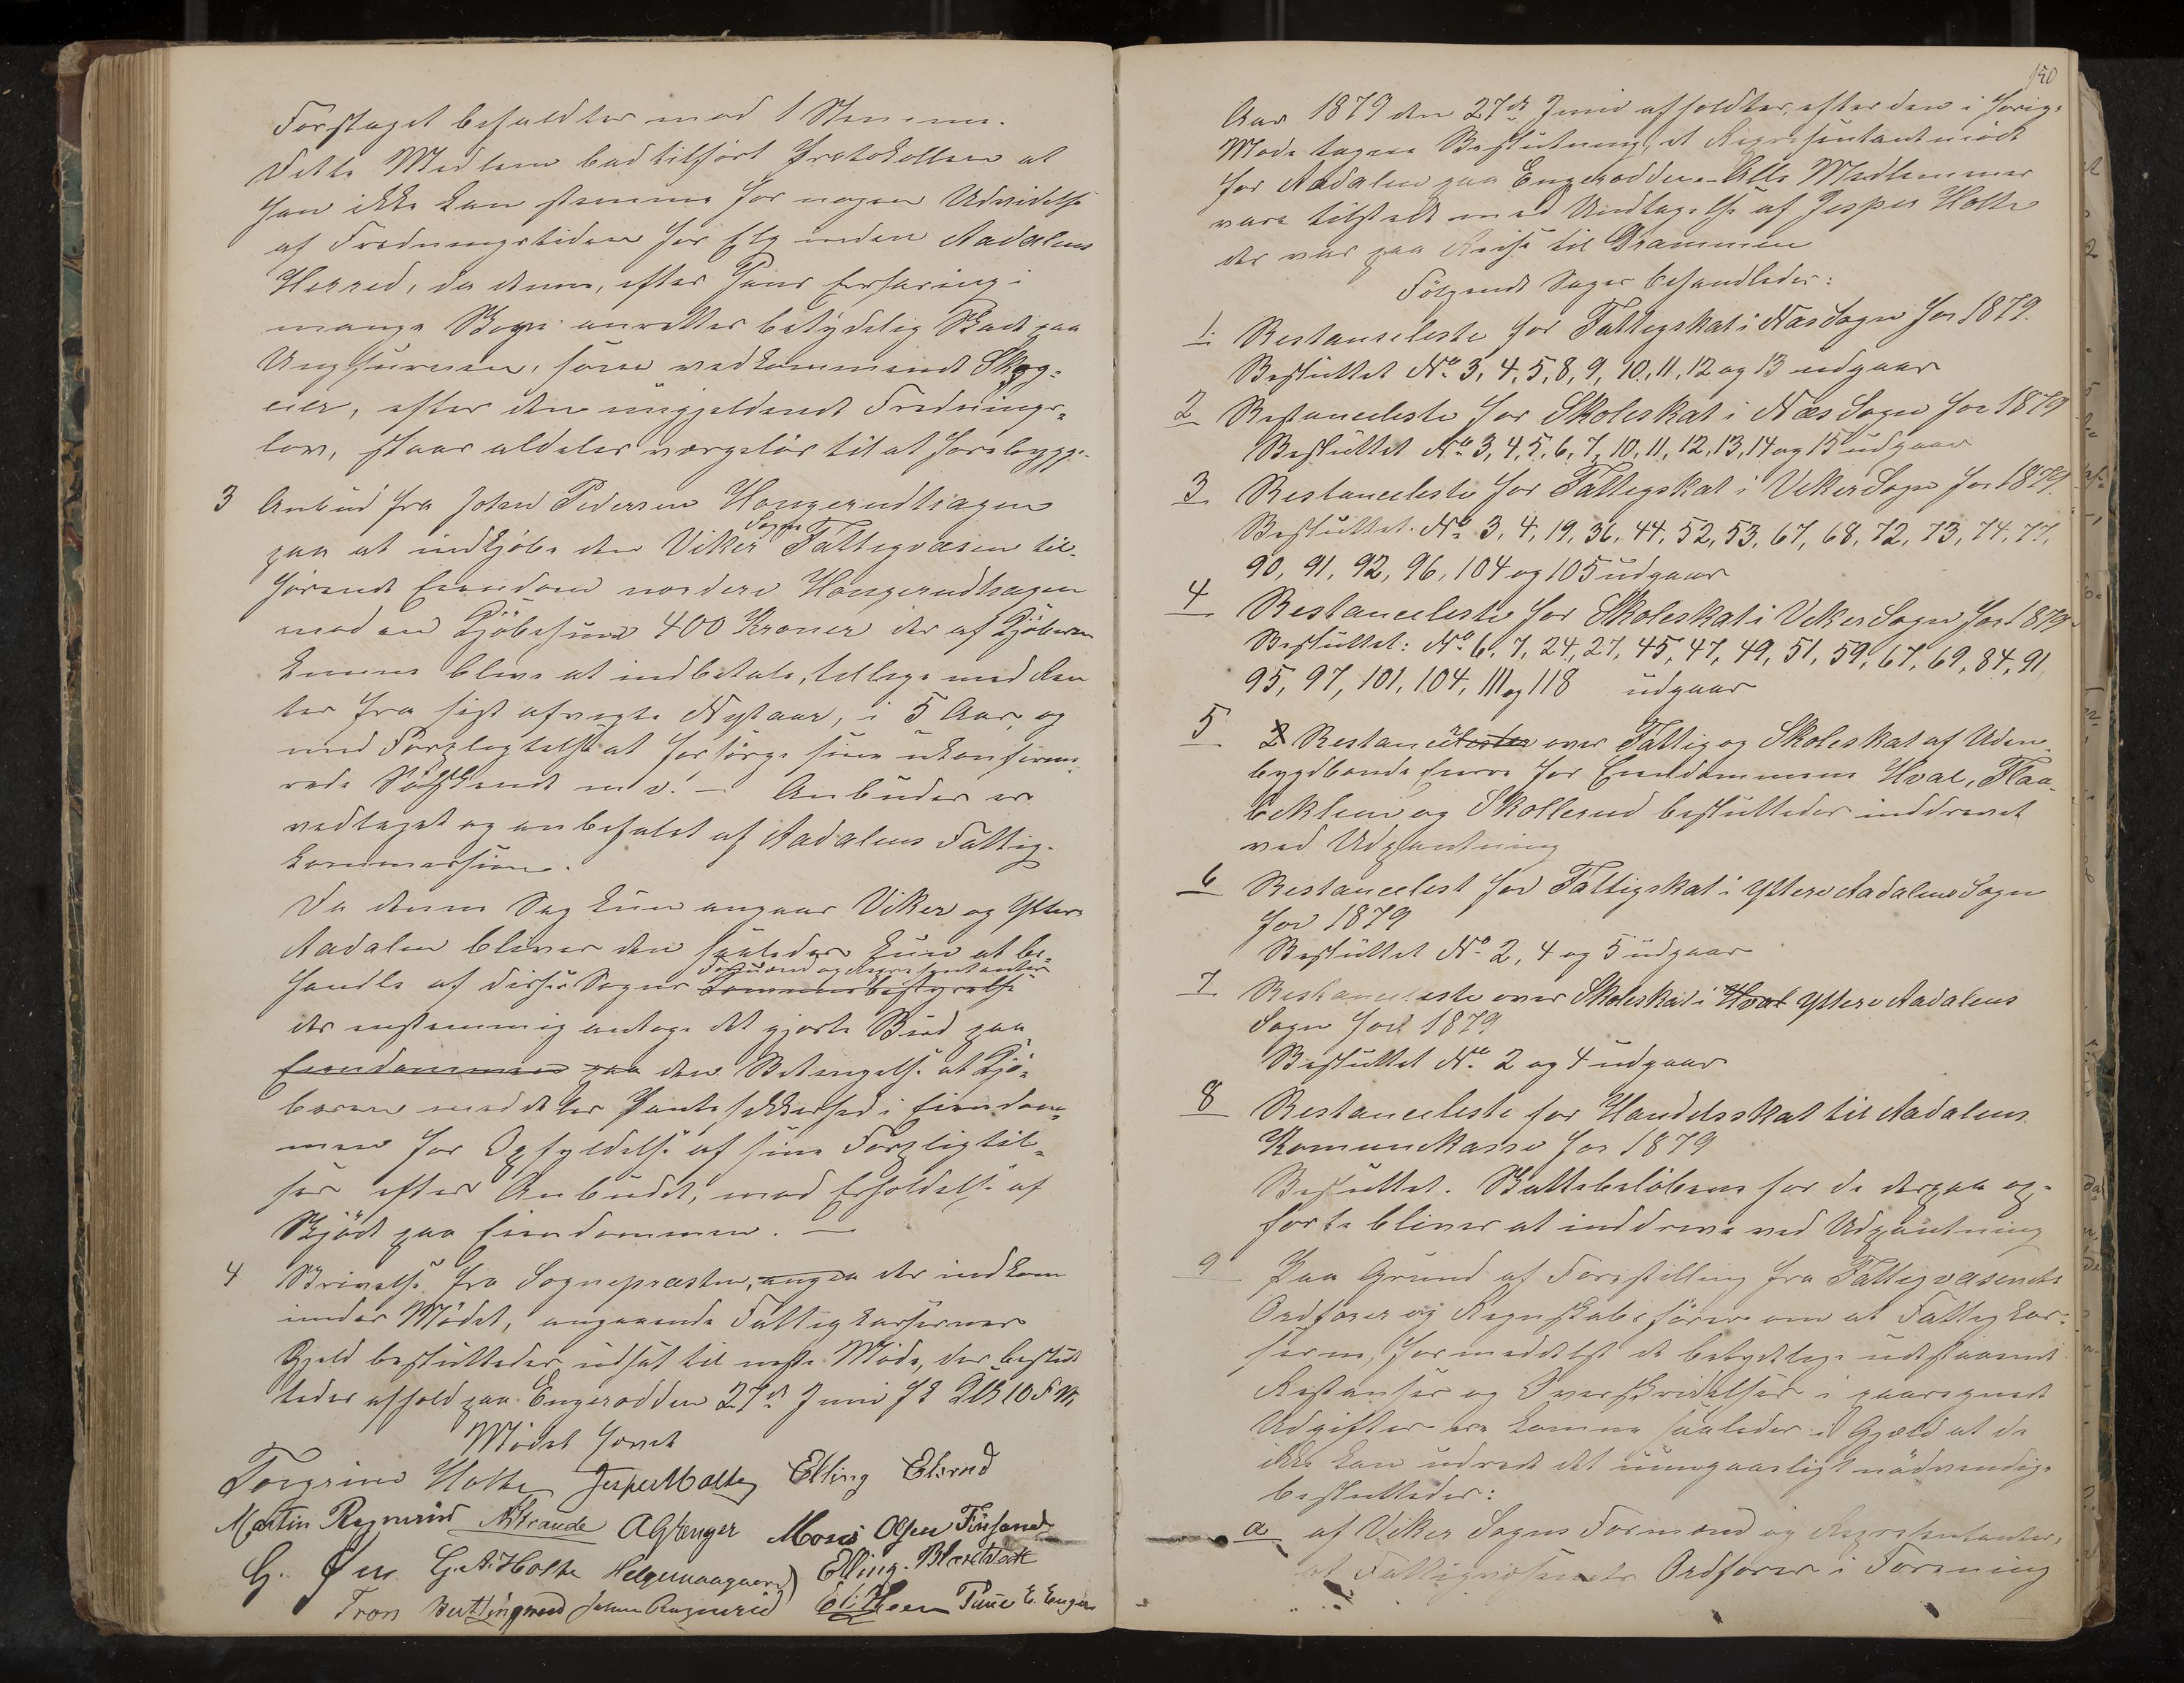 Forslaget befaldtes mod 1 Stemme.
Dette Medlem bad tilført Protokollen at
han ikke kan stemme for nogen Udvidelse
af Fredningstiden for Elg inden Aadalens
Herred, da denne, efter hans Erfaring i
mange Skove anretter betydelig Skade paa
Ungfuruen, som vedkommende Skog-
eier, efter den nugjeldende Frednings-
lov, staar aldeles værgeløs til at forebygge.
3 Anbud fra Johan Pedersen Hougerudhagen
Sogns
paa at indkjøbe den Viker Fattigvæsen til-
hørende Eiendom nordere Hougerudhagen
mod en Kjøbesum 400 Kroner der af Kjøberen
kunne blive at indbetale, tillige med Ren
ter fra sist afvigte Nytaar, i 5 Aar og
med Forpligtelse at forsørge sine ukonfirme-
rede Sødskende m. v. — Anbudet er
vedtaget og anbefalet af Aadalens Fattig-
kommission.
Da denne Sag kun angaar Viker og Ytre
Aadalen bliver den saaledes kun at be-
Formænd og Repræsentanter
handle af disse Sogns Kommunebestyrelse
der enstemmig antoge det gjorte Bud paa
Eiendommen paa den Betingelse at Kjø-
beren meddeler Pantesikkerhed i Eiendom-
men for Opfyldelse af sine Forpligtel-
ser efter Anbudet, mod Erholdelse af
Skjøde paa Eiendommen. —
4 Skrivelse fra Sognepræsten, angaa der indkom
under Mødet, angaaende Fattigkassernes
Gjeld besluttedes udsat til neste Møde, der beslut
tedes afhold paa Engerodden 27de Juni Kl 10 F M.
Mødet hævet
Torgrim Holte Jesper Holte Elling Elsrud
Martin Ragnrud AStrande AGStenger Mons Olsen Finsand
G. Øen G. A. Holte Helgemaagaard Elling. Bladstock
Tron Buttingsrud Johan Ragnerud E. Theen Tune E. Enger
150
Aar 1879 den 27de Juni afholdtes, efter den i forrige
Møde tagne Beslutning, et Repræsentantmøde
for Aadalen paa Engerodden. Alle Medlemmer
vare tilstede med Undtagelse af Jesper Holte
der var paa Reise til Drammen
Følgende Sager behandledes:
1. Restanseliste for Fattigskat i Næs Sogn for 1879.
Besluttet No 3, 4, 5, 8, 9, 10, 11, 12 og 13 udgaar
2 Restanceliste for Skoleskat i Næs Sogn for 1879
Besluttet No 3, 4, 5, 6, 7, 10, 11, 12, 13, 14 og 15 udgaar
3 Restanceliste for Fattigskat i Viker Sogn for 1879.
Besluttet. No 3, 4, 19, 36, 44, 52, 53, 67, 68, 72, 73, 74, 77,
90, 91, 92, 96, 104 og 105 udgaar
4 Restanceliste for Skoleskat i Viker Sogn for 1879
Besluttet: No 6, 7, 24, 27, 45, 47, 49, 51, 59, 67, 69, 84, 91,
95, 97, 101, 104, 111 og 118 udgaar
5 Restancelister over Fattig og Skoleskat af Uden-
bygdboende Eiere for Eiendommene Hval, Flaa-
beklien og Skollerud besluttedes inddrevet
ved Udpantning
6 Restancelist for Fattigskat i Yttere Aadalens Sogn
for 1879
Besluttet No 2, 4 og 5 udgaar
7 Restanceliste over Skoleskat i Hval Yttere Aadalens
Sogn for 1879
Besluttet No 2 og 4 udgaar
8 Restanceliste for Handelsskat til Aadalens
Komunekasse for 1879
Besluttet. Skattebeløbene for de derpaa op-
førte bliver at inddrive ved Udpantning
9 Paa Grund af Forestilling fra Fattigvæsenets
Ordfører og Regnskabsfører om at Fattigkas-
serne, formedelst de betydelige udestaaende
Restanser og Overskridelser i paaregnede
Udgifter ere komne saaledes i Gjæld at de
ikke kan udrede det uungaaeligt nødvendige
besluttedes:
a af Viker Sogns Formænd og Repræsentanter,
at Fattigvæsenets Ordfører i Forening